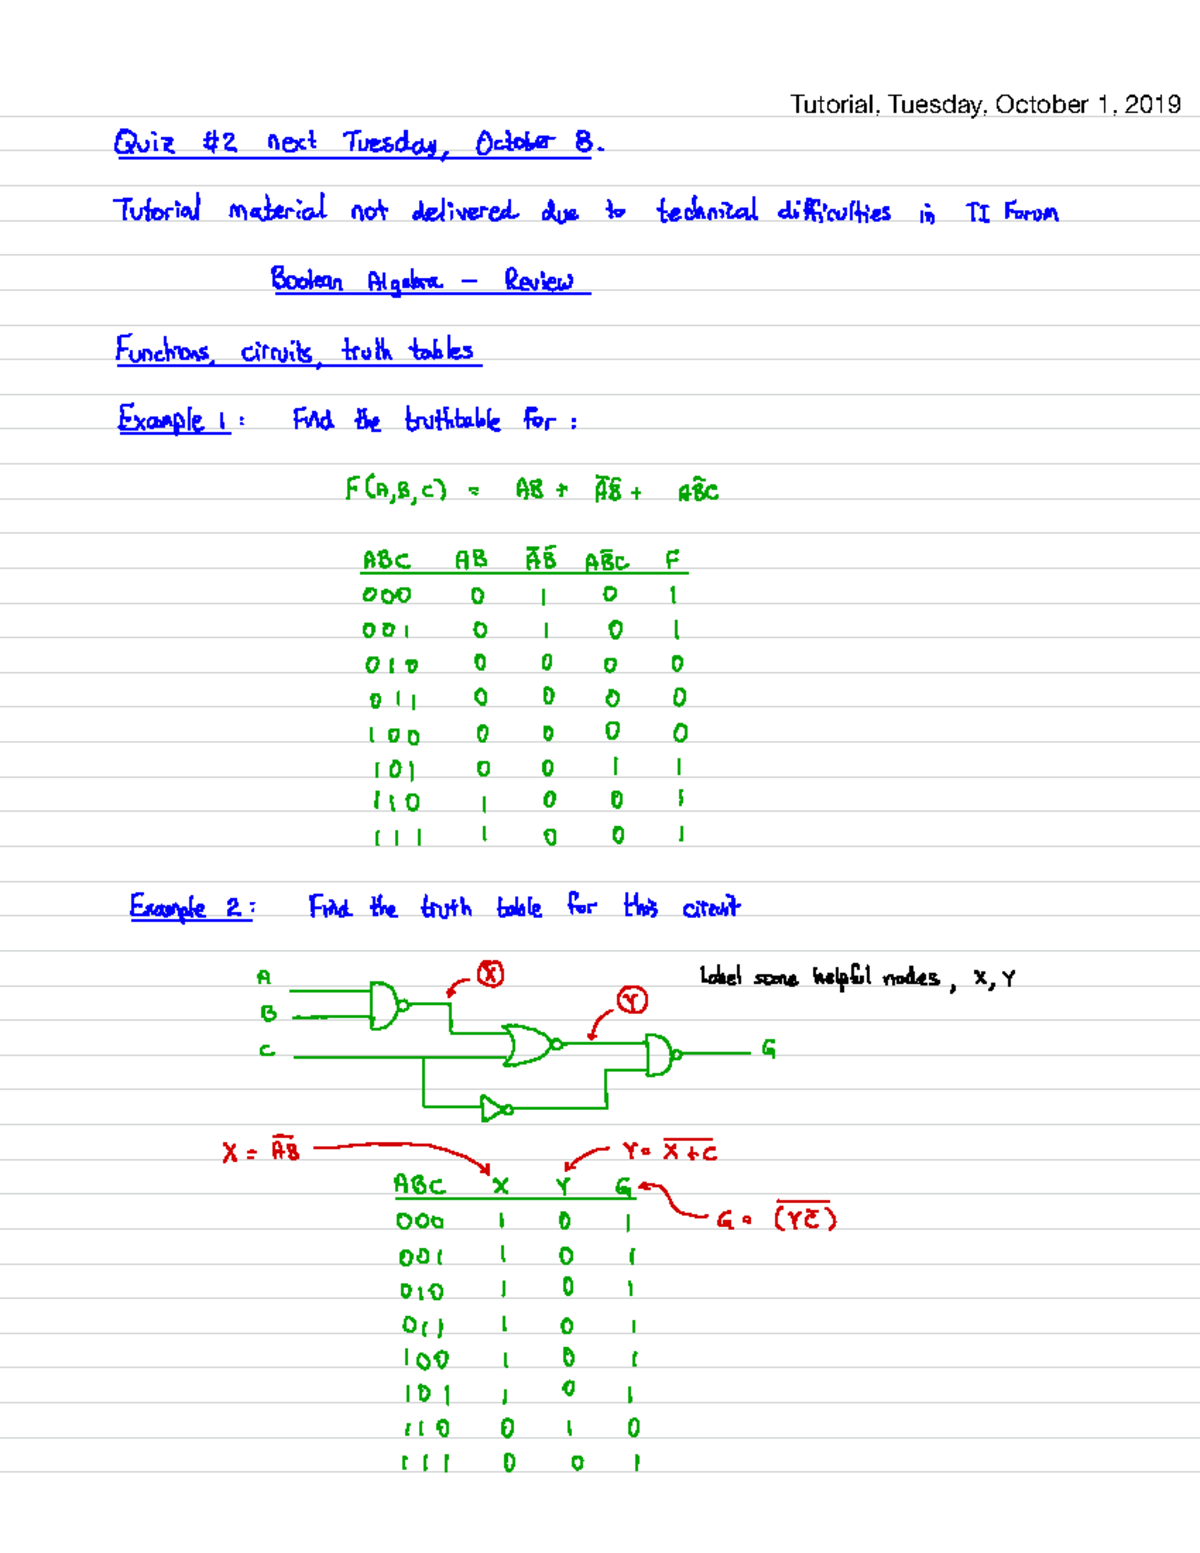 Tutorial, Tuesday, October 1, 2019
Quiz #2 next Tuesday, October 8.
Tutorial material not delivered due to technical difficulties in TI Forum
Boolean Algebra — Review
Functions, circuits, truth tables
Example 1: Find the truthtable for:
F(A,B,C) = AB + A̅B̅ + AB̅C
ABC AB A̅B̅ AB̅C F
000 0 1 0 1
001 0 1 0 1
010 0 0 0 0
011 0 0 0 0
100 0 0 0 0
101 0 0 1 1
110 1 0 0 1
111 1 0 0 1
Example 2: Find the truth table for this circuit
A X Label some helpful nodes, X, Y
B Y
C G
X = A̅B̅ Y = X̅ ̅+̅ ̅C̅
ABC X Y G
000 1 0 1 G = (Y̅C̅̅)
001 1 0 1
010 1 0 1
011 1 0 1
100 1 0 1
101 1 0 1
110 0 1 0
111 0 0 1